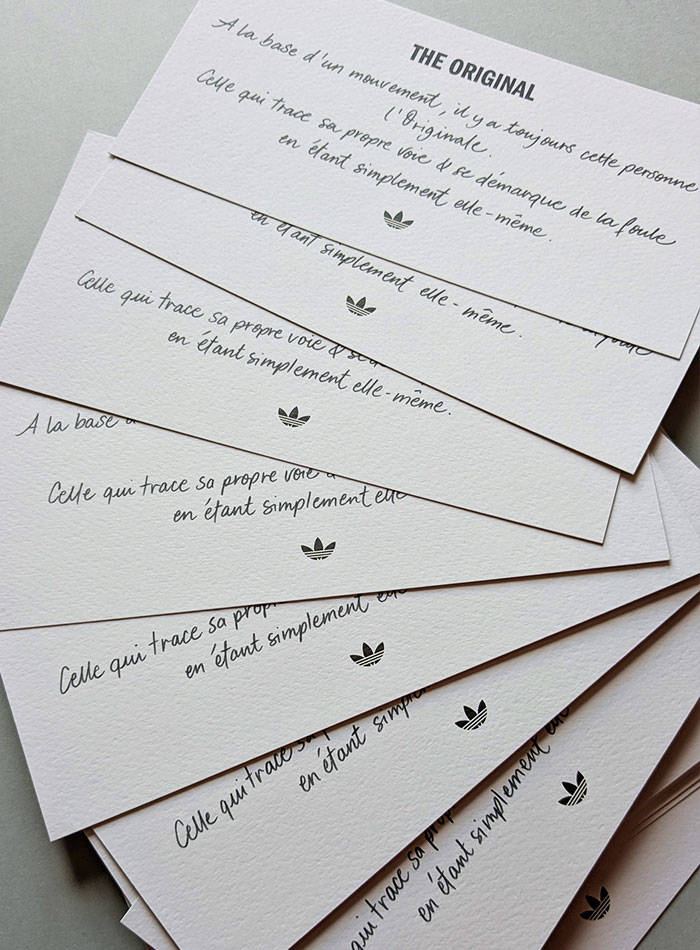 THE ORIGINAL
A la base d'un mouvement, il y a toujours cette personne
l'Originale.
Celle qui trace sa propre voie & se démarque de la foule
en étant simplement elle-même.
en étant simplement elle-même.
foule
Celle qui trace sa propre voie & se
en étant simplement elle-même.
A la base
Celle qui trace sa propre voie
en étant simplement elle
Celle qui trace sa prop
en étant simplement elle
Celle qui trace sa
en étant simple
qui trace sa prop
en étant simplement elle